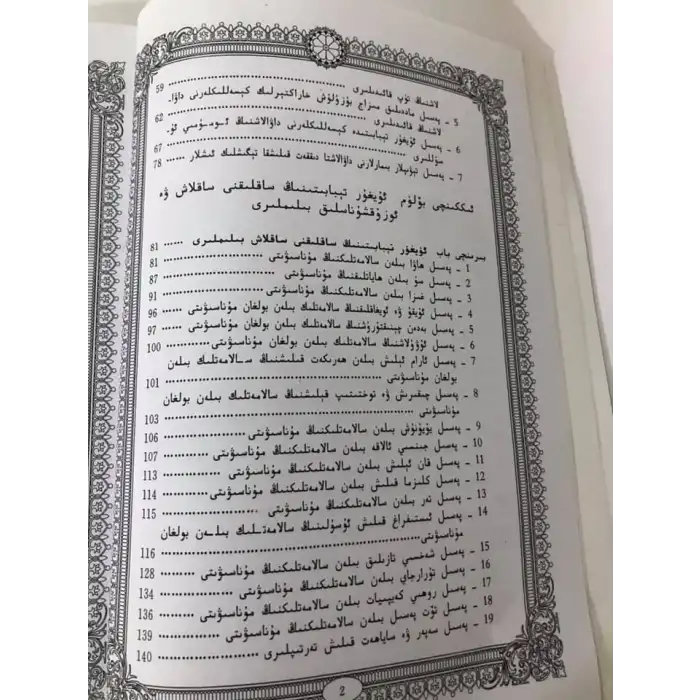 لاشنىڭ تۈپ قائىدىلىرى ........................ 59
5 ـ پەسىل ماددىلىق مىزاج بۇزۇلۇش خاراكتېرلىك كېسەللىكلەرنى داۋا-
لاشنىڭ قائىدىلىرى ........................ 62
6 ـ پەسىل ئۇيغۇر تېبابىتىدە كېسەللىكلەرنى داۋالاشنىڭ ئومۇمىي ئۇ-
سۇللىرى ........................ 67
7 ـ پەسىل تېۋىپلار بىمارلارنى داۋالاشتا دىققەت قىلىشقا تېگىشلىك ئىشلار ...... 78
ئىككىنچى بۆلۈم ئۇيغۇر تېبابىتىنىڭ ساقلىقنى ساقلاش ۋە
ئوزۇقشۇناسلىق بىلىملىرى
بىرىنچى باب ئۇيغۇر تېبابىتىنىڭ ساقلىقنى ساقلاش بىلىملىرى ...... 81
1 ـ پەسىل ھاۋا بىلەن سالامەتلىكنىڭ مۇناسىۋىتى ............ 81
2 ـ پەسىل سۇ بىلەن ھاياتلىقنىڭ مۇناسىۋىتى ............ 87
3 ـ پەسىل غىزا بىلەن سالامەتلىكنىڭ مۇناسىۋىتى ............ 91
4 ـ پەسىل ئۇيقۇ ۋە ئويغاقلىقنىڭ سالامەتلىك بىلەن بولغان مۇناسىۋىتى ...... 96
5 ـ پەسىل بەدەن چېنىقتۇرۇشنىڭ سالامەتلىك بىلەن بولغان مۇناسىۋىتى ...... 97
6 ـ پەسىل ئۇۋۇلاشنىڭ سالامەتلىك بىلەن بولغان مۇناسىۋىتى ............ 100
7 ـ پەسىل ئارام ئېلىش بىلەن ھەرىكەت قىلىشنىڭ سالامەتلىك بىلەن
بولغان مۇناسىۋىتى ........................ 101
8 ـ پەسىل چىقىرىش ۋە توختىتىپ قېلىشنىڭ سالامەتلىك بىلەن بولغان
مۇناسىۋىتى ........................ 103
9 ـ پەسىل يۇيۇنۇش بىلەن سالامەتلىكنىڭ مۇناسىۋىتى ............ 106
10 ـ پەسىل جىنسىي ئالاقە بىلەن سالامەتلىكنىڭ مۇناسىۋىتى ............ 107
11 ـ پەسىل قان ئېلىش بىلەن سالامەتلىكنىڭ مۇناسىۋىتى ............ 113
12 ـ پەسىل كلىزما قىلىش بىلەن سالامەتلىكنىڭ مۇناسىۋىتى ............ 114
13 ـ پەسىل تەر بىلەن سالامەتلىكنىڭ مۇناسىۋىتى ............ 115
14 ـ پەسىل ئىستىفراغ قىلىش ئۇسۇلىنىڭ سالامەتلىك بىلەن بولغان
مۇناسىۋىتى ........................ 116
15 ـ پەسىل شەخسىي تازىلىق بىلەن سالامەتلىكنىڭ مۇناسىۋىتى ............ 128
16 ـ پەسىل تۇرارجاي بىلەن سالامەتلىكنىڭ مۇناسىۋىتى ............ 134
17 ـ پەسىل روھىي كەيپىيات بىلەن سالامەتلىكنىڭ مۇناسىۋىتى ............ 136
18 ـ پەسىل تۆت پەسىل بىلەن سالامەتلىكنىڭ مۇناسىۋىتى ............ 139
19 ـ پەسىل سەپەر ۋە ساياھەت قىلىش تەرتىپلىرى ............ 140
2